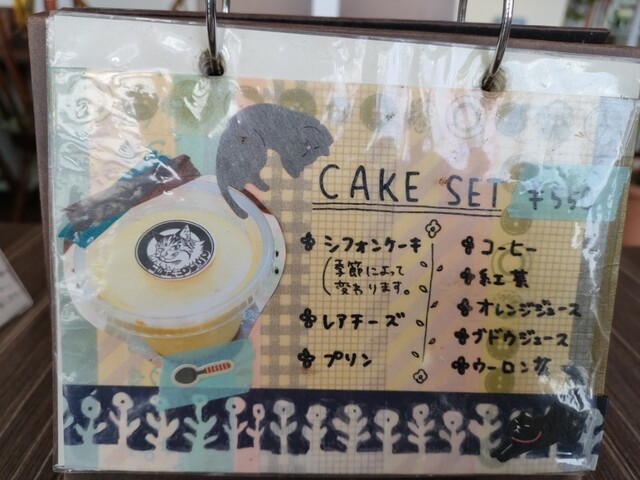 CAKE SET ¥550
シフォンケーキ
(季節によって
変わります。
レアチーズ
プリン
コーヒー
紅茶
オレンジジュース
ブドウジュース
ウーロン茶